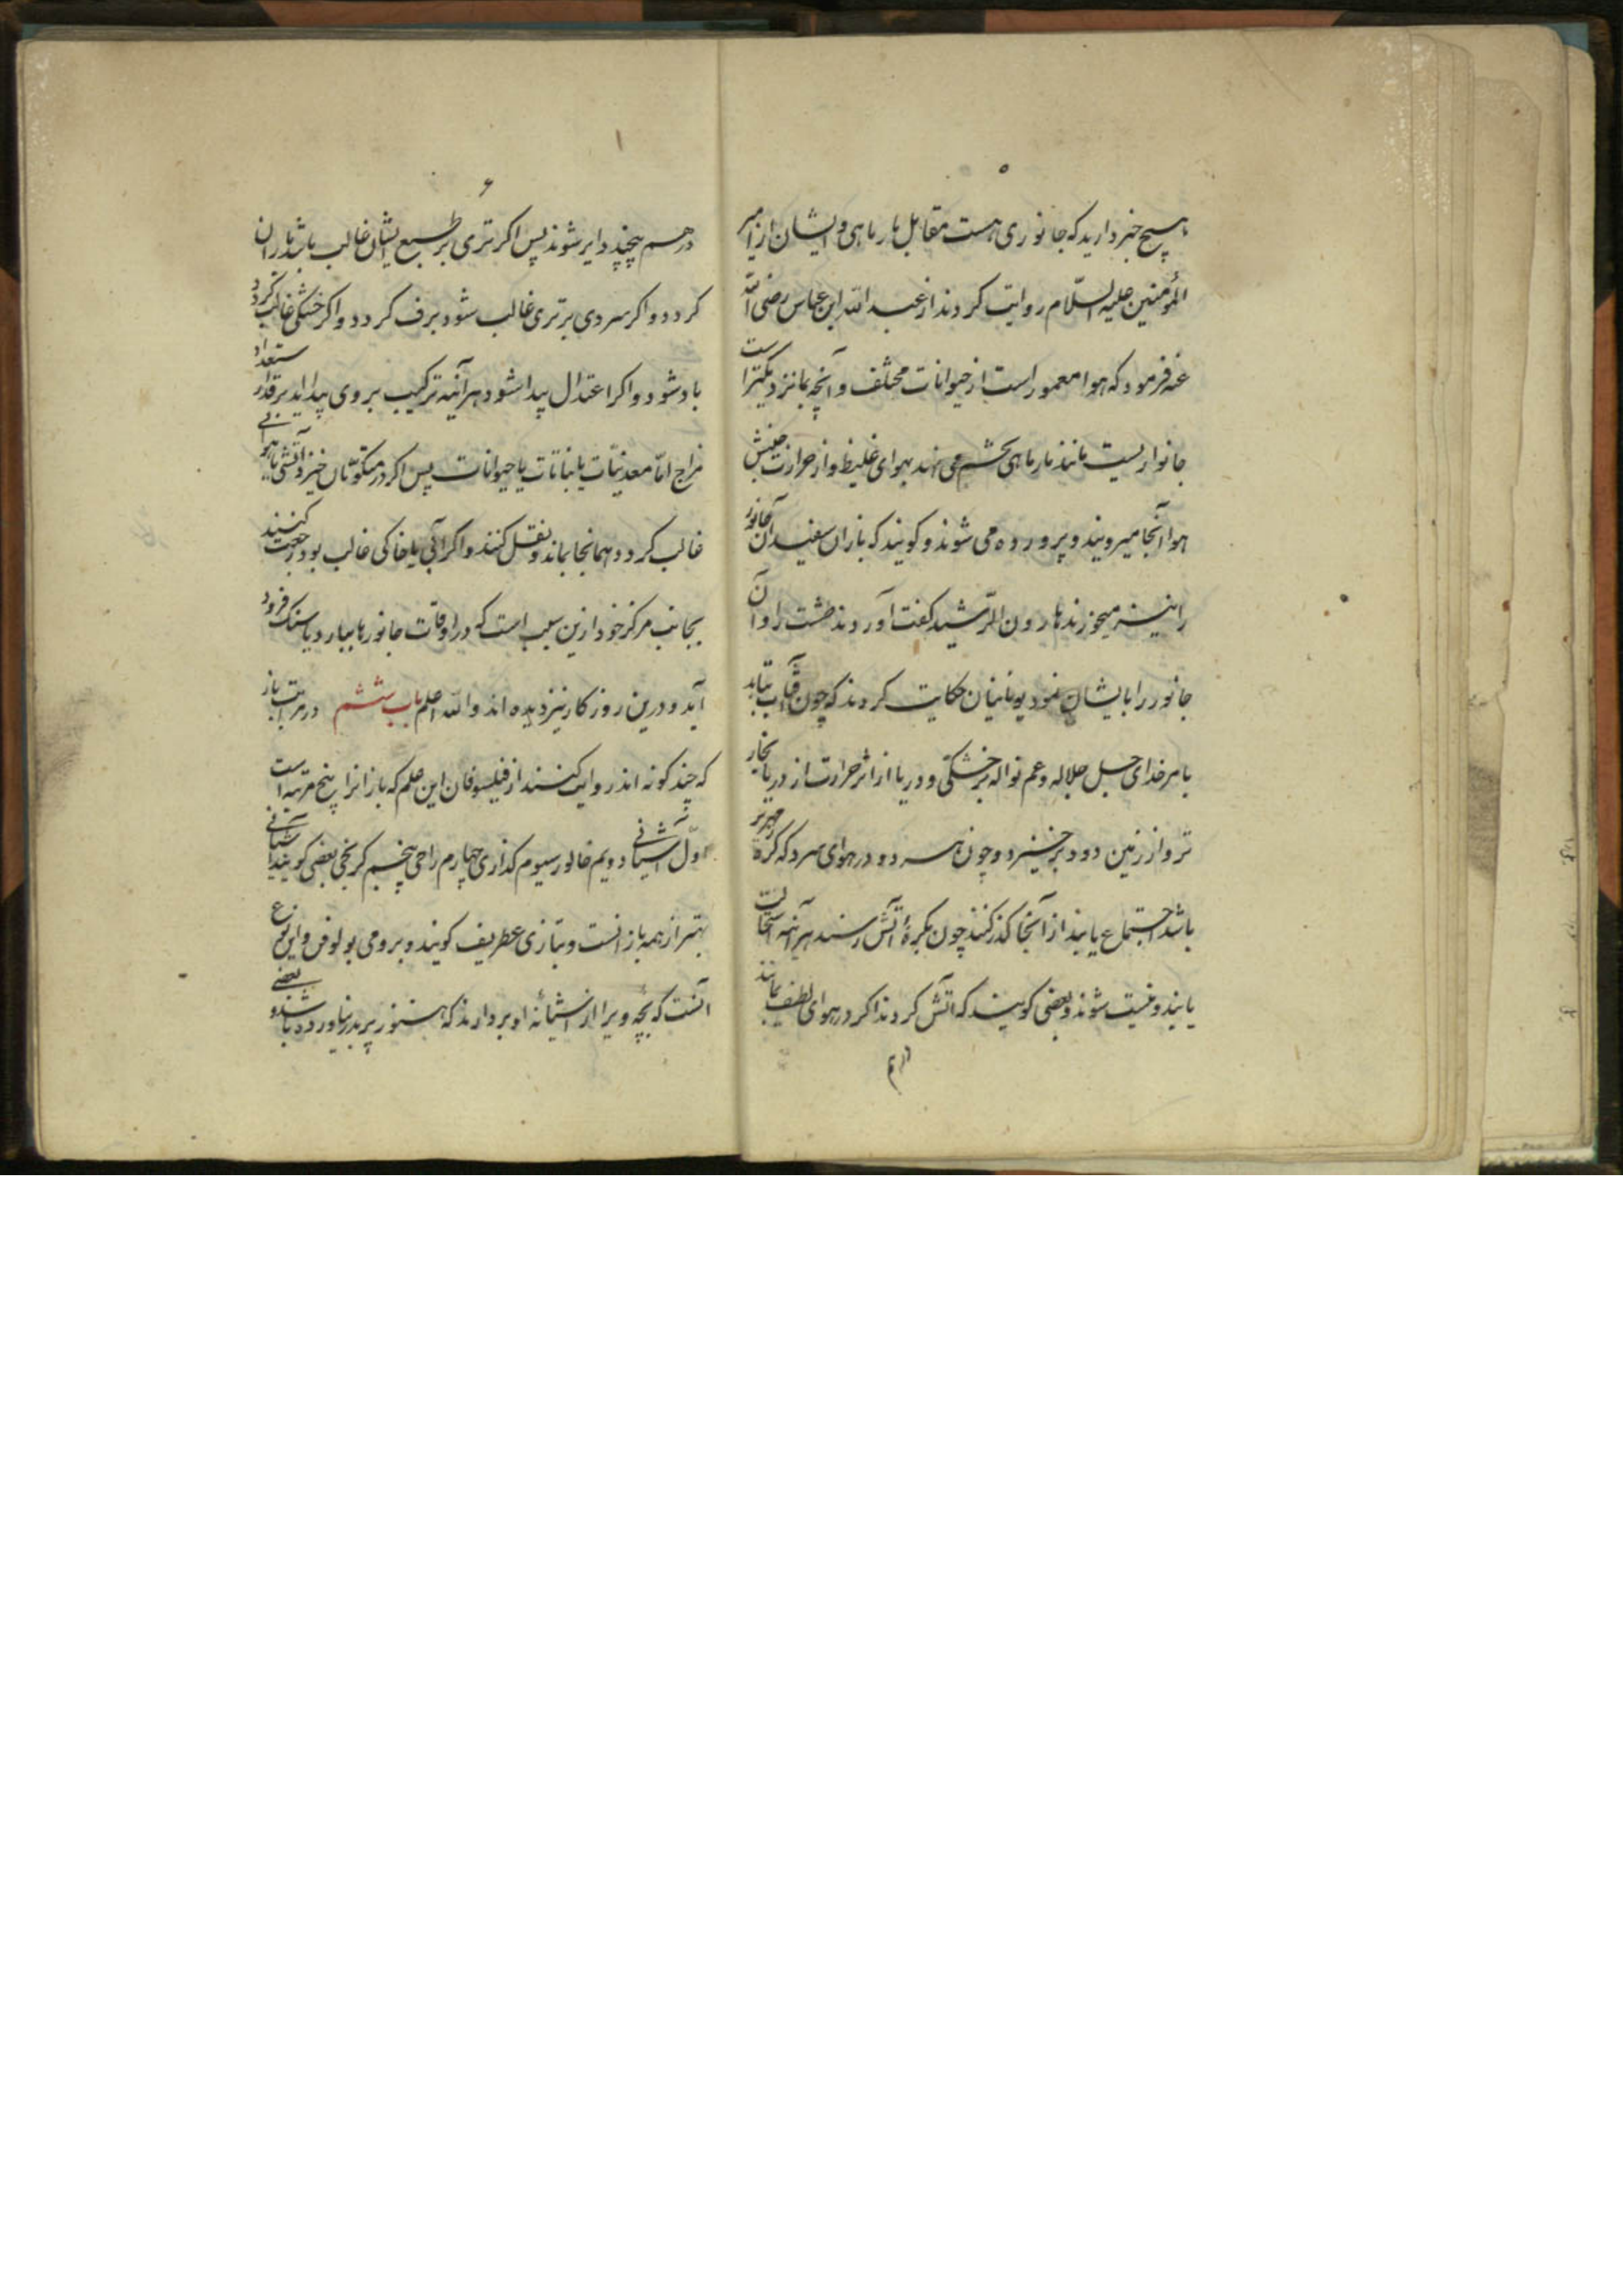 ۵
هیچ خبر دارید که جانوری هست مقابل مار ماهی و ایشان از امیر
المؤمنین علیه السلام روایت کردند از عبد الله ابن عباس رضی الله
عنه فرمود که هوا معمور است از حیوانات مختلف و آنچه بما نزدیکتر است
جانواریست مانند مار ماهی بچشم می‌آیند بهوای غلیظ و از حرارت جنبش
هوا آنجا میرویند و پرورده می شوند و کویند که بازان سفید آن جانور
را نیز میخورند هارون الرشید کفت آوردند طشت را و آن
جانور را بایشان نمود یونانیان حکایت کردند که چون آفتاب بتابد
بامر خدای جل جلاله و عم نواله بر خشکی و دریا از اثر حرارت از دریا بخار
تر و از زمین دود بر خیزد و چون هر دو در هوای سرد که کره زمهریر
باشد اجتماع یابند از آنجا کذر کنند چون بکره آتش رسند هرآینه استحالت
یابند و نیست شوند و بعضی کویند که آتش کردند اکر در هوای لطیف بمانند
درهم
۶
در هم پیچند و ایر شوند پس اکر تری بر طبع ایشان غالب باشد باران
کردد و اکر سردی بر تری غالب شود برف کردد و اکر خشکی غالب کردد
باد شود و اکر اعتدال پیدا شود هرآینه ترکیب بر وی پیدا اید بر قدر استعداد
مزاج اما معدنیات یا نباتات یا حیوانات پس اکر در متکونات خیز آتشی یا هوایی
غالب کردد همانجا بماند و نقل نکنند و اکر آبی یا خاکی غالب بود رجعت کنند
بجانب مرکز خود ازین سبب است که در اوقات جانورها ببارد یا سنک فرود
آید و درین روزکار نیز دیده اند و الله اعلم باب ششم در مراتب باز
که چند کونه اند روایت کنند از فیلسوفان این علم که باز انرا پنج مرتبه است
اول آشیانی دویم خالور سیوم کذاری چهارم راحی پنجم کریخی بعضی کویند آشیانی
بهتر از همه بازانست و بتازی عطریف کویند و برومی بولوفن و این نوع
آنست که بچه ویرا از آشیانه او بردارند که هنوز پر بدر نیاورده باشد و بعضی